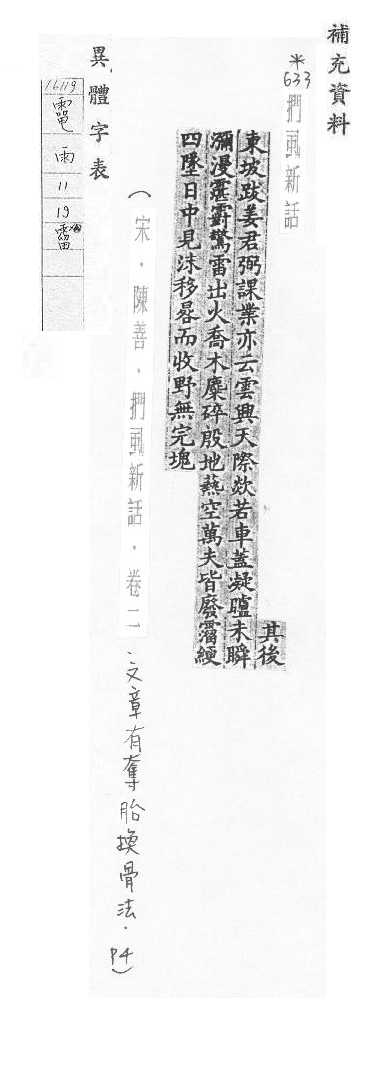 補充資料
*
633
捫虱新話
其後
東坡跋姜君弼課業亦云雲興天際欻若車蓋凝矑未瞬
瀰漫霮䨴驚雷出火喬木麋碎殷地爇空萬夫皆廢霤綆
四墜日中見沬移晷而收野無完塊
(宋.陳善.捫虱新話.卷二.文章有奪胎換骨法.P4)
異體字表
16119
雨
11
19